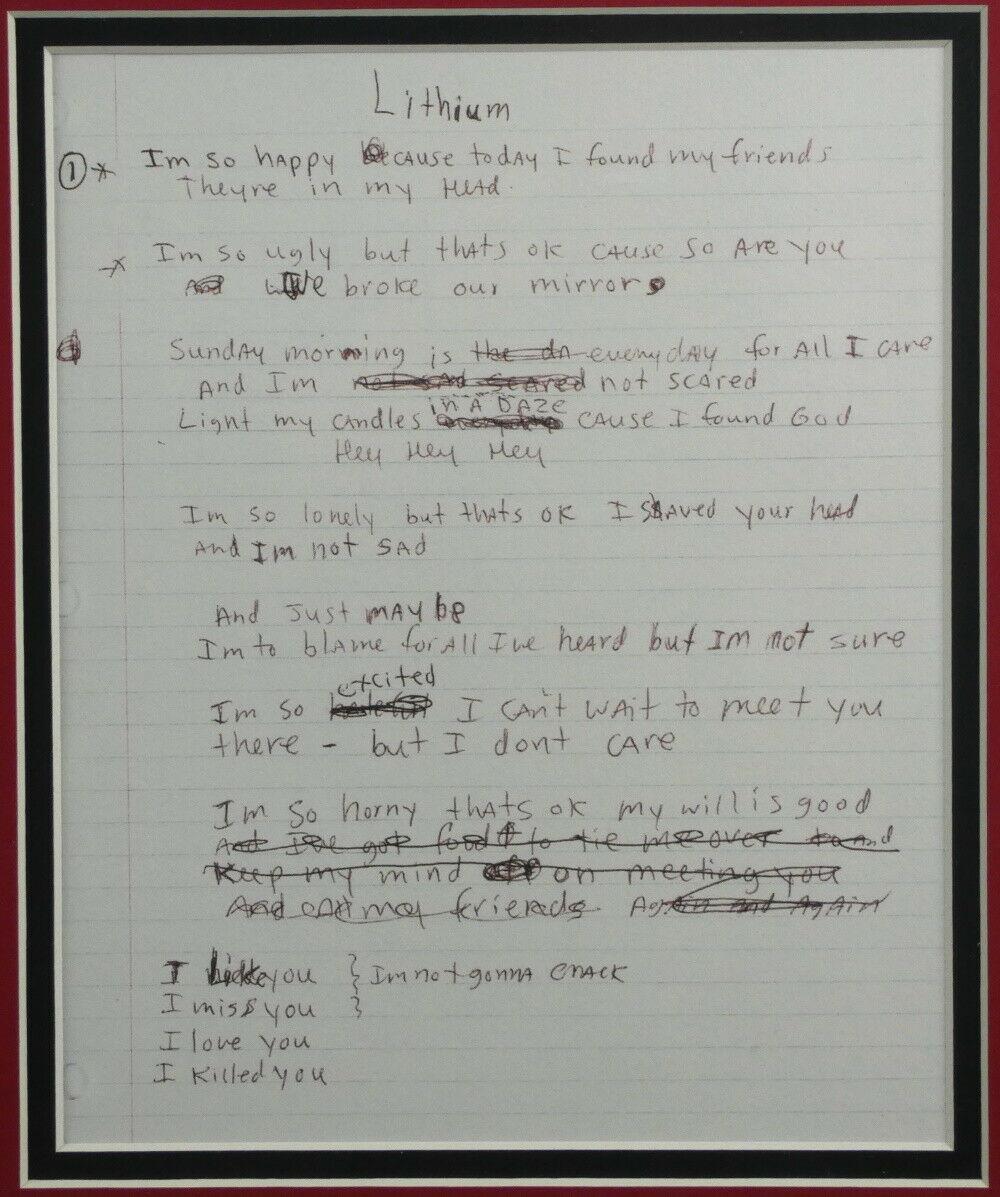 Lithium
1 * Im so happy because today I found my friends
Theyre in my Head.
* Im so ugly but thats ok cause so Are you
We broke our mirrors
Sunday morning is everyday for All I care
And Im not scared
in A DAze
Light my candles cause I found God
Hey Hey Hey
Im so lonely but thats ok I shaved your head
And Im not sad
And Just maybe
Im to blame for All Ive heard but Im not sure
excited
Im so I can't wait to meet you
there - but I dont care
Im so horny thats ok my will is good
And Ive got food to tie me over to And
Keep my mind off on meeting you
And my friends. Again and Again
I like you } Im not gonna crack
I miss you }
I love you
I killed you